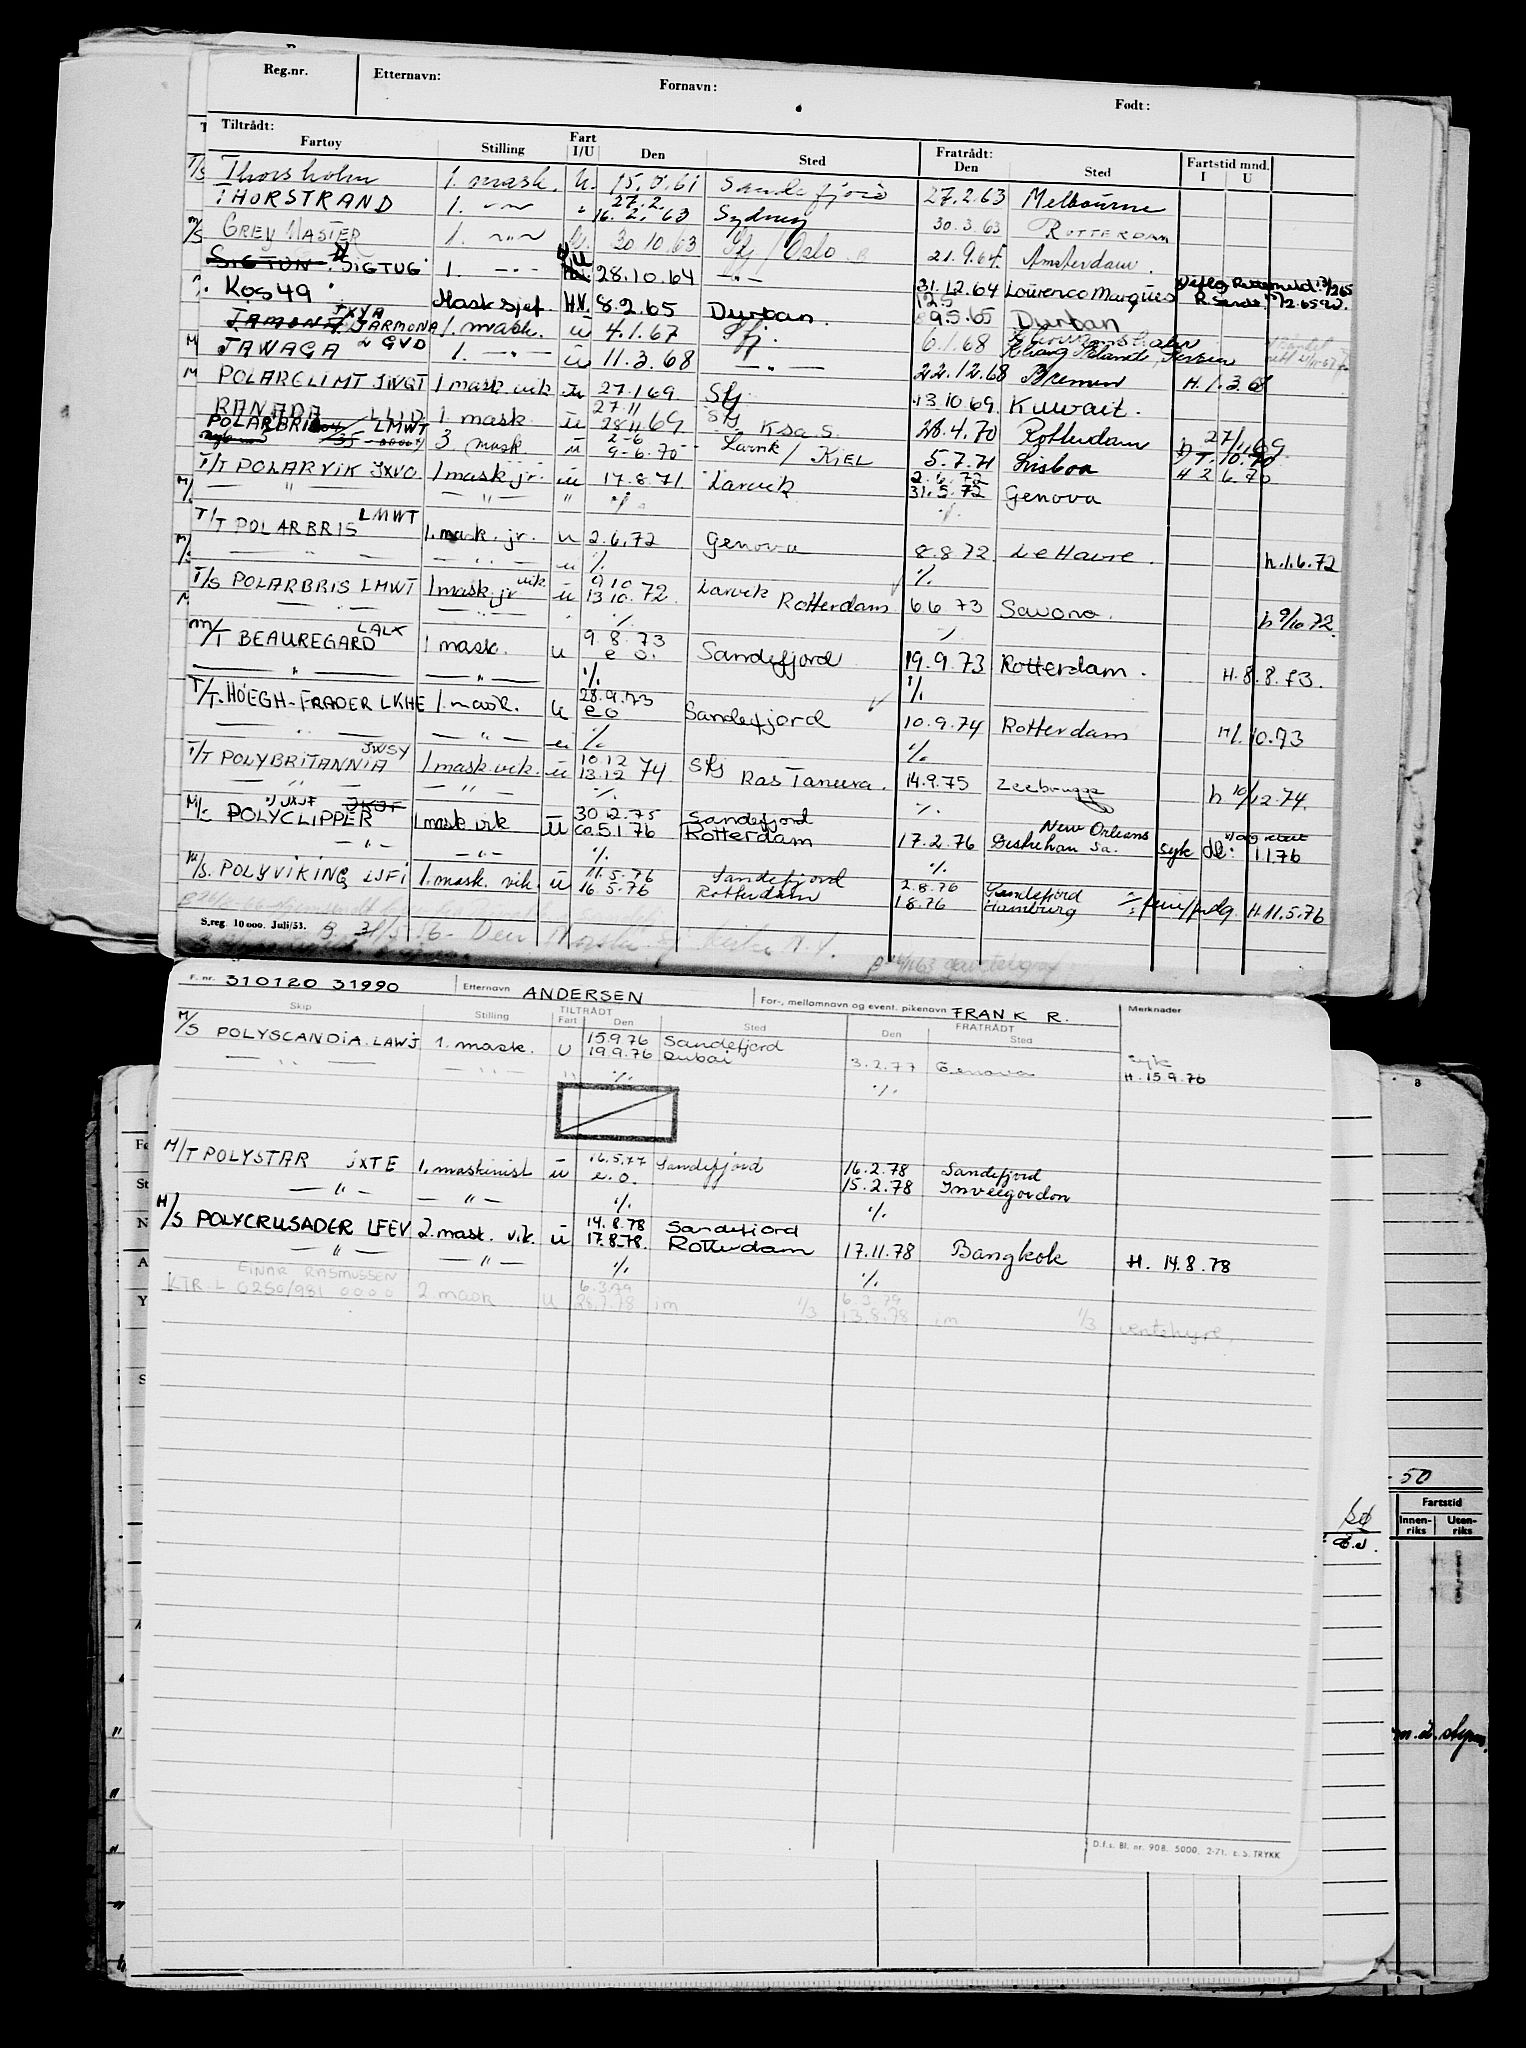 Reg.nr. Etternavn: Fornavn: Født:
Tiltrådt: Fratrådt: Fartstid mnd.
Fartøy Stilling Fart I/U Den Sted Den Sted I U
T/S Thorsholm 1. mask. U. 15. 61 Sandefjord 27.2.63 Melbourne
THORSTRAND 1. -"- " 27.2. 16.2.63 Sydney 30.3.63 ROTTERDAM
M/S GREY MASTER 1. -"- U. 30.10.63 Sfj/Oslo 21.9.64. Amsterdam.
SIGTUG 1. -"- U 28.10.64 -"- 31.12.64 Lourenco Marques
KOS 49 Mask sjef. H.V. 8.2.65 Durban. 9.5.65 Durban
JXYA
JARMONA 1. mask. ü 4.1.67 Sfj. 6.1.68
M JAWAGA LGVD 1. -"- ü 11.3.68 -"- 22.12.68 Bremen H. 1.3.68
M POLARCLIMT JWGT 1 mask vik ü 27.1.69 Sfj 13.10.69. Kuwait.
RANADA LLID 1. mask ü 27.11 28.11.69 Sfj K.sa.S. 28.4.70 Rotterdam h 27/11.69
POLARBRIS LMWT 3. mask ü 2-6 9-6.70 Larvik / KIEL 5.7.71 Lisboa H 2.6.70
T/T POLARVIK JXVO 1 mask jr. ü 17.8.71 Larvik 2.6.72 31.5.72 Genova
— " — — " — " ./. ./.
T/T POLARBRIS LMWT 1. mask. jr. u 2.6.72 Genova 8.8.72 Le Havre. h.1.6.72
— " — — " — u ./. ./.
T/S POLARBRIS LMWT 1 mask jr vik. ü 9.10 13.10.72. Larvik Rotterdam 6.6.73 Savona. h 9/10.72.
— " — — " — ./. ./.
M/T BEAUREGARD LALX 1 mask. u 9.8.73 e.o. Sandefjord 19.9.73 Rotterdam. H.8.8.73.
— " — — " — ./. ./.
T/T. HÖEGH-TRADER LKHE 1. mask. u 28.9.73 eo Sandefjord 10.9.74 Rotterdam 1/10.73
— " — — " — u ./. ./.
T/T POLYBRITANNIA JWSY 1 mask vik. ü 10.12 13.12 74 Sfj Ras Tanura. 14.9.75 Zeebrugge h 10/12.74.
— " — — " — ü ./. ./.
POLYCLIPPER JXJF 1 mask vik ü 30.12.75 ca.5.1.76 Sandefjord Rotterdam 17.2.76 New Orleans syk 1.1.76
— " — — " — ./. ./.
M/S. POLYVIKING LJFI 1. mask. vik. ü 11.5.76 16.5.76 Sandefjord Rotterdam 2.8.76 1.8.76 Sandefjord Hamburg H.11.5.76
S.reg. 10 000. Juli/53.
F. nr. 310120 31990 Etternavn ANDERSEN For-, mellomnavn og event. pikenavn FRANK R. Merknader
TILTRÅDT FRATRÅDT
Skip Stilling Fart Den Sted Den Sted
M/S POLYSCANDIA. LAWJ 1. mask. U 15.9.76 19.9.76 Sandefjord Dubai 3.2.77 Genova syk H. 15.9.76
— " — — " — " ./. ./.
M/T POLYSTAR JXTE 1. maskinist ü 16.5.77 e.o. Sandefjord 16.2.78 15.2.78 Sandefjord Invergordon
— " — — " — ./. ./.
M/S POLYCRUSADER LFEV 2. mask. vik. ü 14.8.78 17.8.78. Sandefjord Rotterdam 17.11.78 Bangkok H. 14.8.78
— " — — " — ./. ./.
EINAR RASMUSSEN
KTR. L 6250/981 0000 2. mask U 6.3.79 28.7.78 im 1/3 6.3.79 13.8.78 im 1/3 ventehyre.
D.f.s. Bl. nr. 908. 5000. 2-71. E.S. TRYKK
8
- 50
Fartstid
Innen-riks Uten-riks